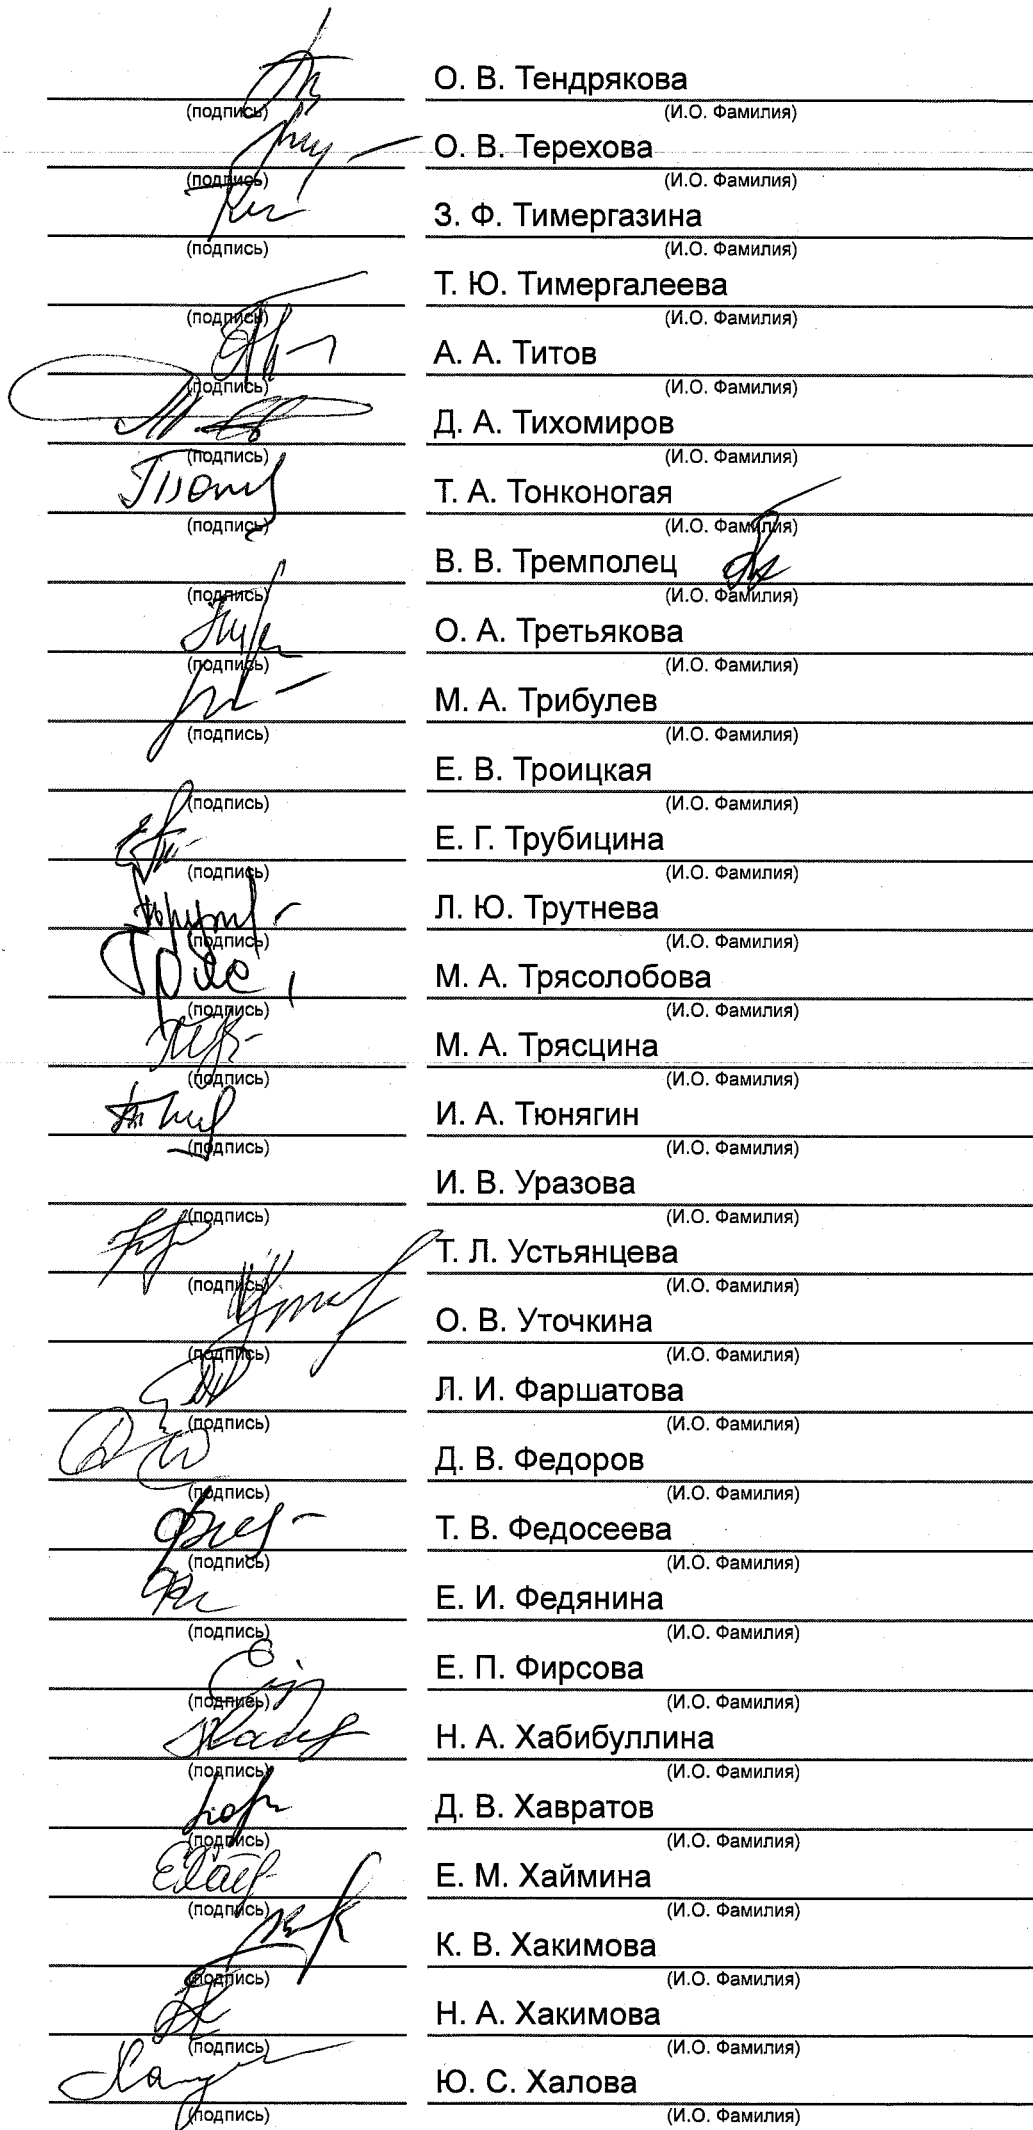 О. В. Тендрякова
(подпись) (И.О. Фамилия)
О. В. Терехова
(подпись) (И.О. Фамилия)
З. Ф. Тимергазина
(подпись) (И.О. Фамилия)
Т. Ю. Тимергалеева
(подпись) (И.О. Фамилия)
А. А. Титов
(подпись) (И.О. Фамилия)
Д. А. Тихомиров
(подпись) (И.О. Фамилия)
Т. А. Тонконогая
(подпись) (И.О. Фамилия)
В. В. Тремполец
(подпись) (И.О. Фамилия)
О. А. Третьякова
(подпись) (И.О. Фамилия)
М. А. Трибулев
(подпись) (И.О. Фамилия)
Е. В. Троицкая
(подпись) (И.О. Фамилия)
Е. Г. Трубицина
(подпись) (И.О. Фамилия)
Л. Ю. Трутнева
(подпись) (И.О. Фамилия)
М. А. Трясолобова
(подпись) (И.О. Фамилия)
М. А. Трясцина
(подпись) (И.О. Фамилия)
И. А. Тюнягин
(подпись) (И.О. Фамилия)
И. В. Уразова
(подпись) (И.О. Фамилия)
Т. Л. Устьянцева
(подпись) (И.О. Фамилия)
О. В. Уточкина
(подпись) (И.О. Фамилия)
Л. И. Фаршатова
(подпись) (И.О. Фамилия)
Д. В. Федоров
(подпись) (И.О. Фамилия)
Т. В. Федосеева
(подпись) (И.О. Фамилия)
Е. И. Федянина
(подпись) (И.О. Фамилия)
Е. П. Фирсова
(подпись) (И.О. Фамилия)
Н. А. Хабибуллина
(подпись) (И.О. Фамилия)
Д. В. Хавратов
(подпись) (И.О. Фамилия)
Е. М. Хаймина
(подпись) (И.О. Фамилия)
К. В. Хакимова
(подпись) (И.О. Фамилия)
Н. А. Хакимова
(подпись) (И.О. Фамилия)
Ю. С. Халова
(подпись) (И.О. Фамилия)